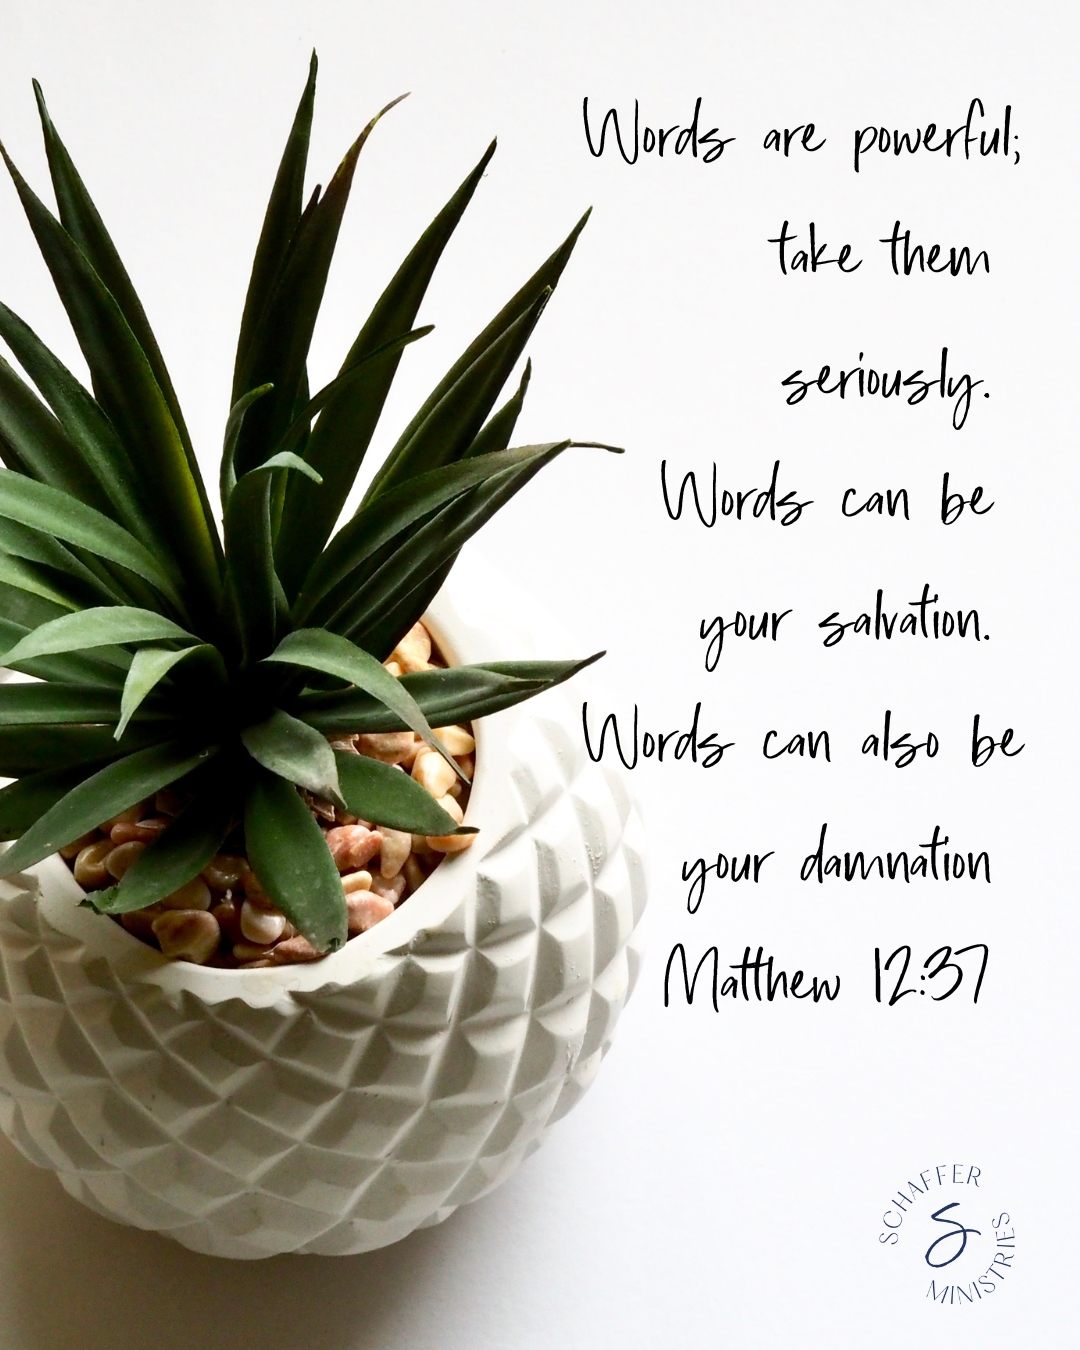 Words are powerful;
take them
seriously.
Words can be
your salvation.
Words can also be
your damnation
Matthew 12:37
SCHAFFER
S
MINISTRIES